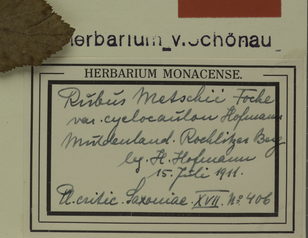 Herbarium v. Schönau
HERBARIUM MONACENSE.
Rubus Metschii Focke
var. cyclocaulon Hofmann
Muldenland. Rochlitzer Berg
lg. H. Hofmann
15. Juli 1911.
Pl. critic. Saxoniae. XVII. No 406